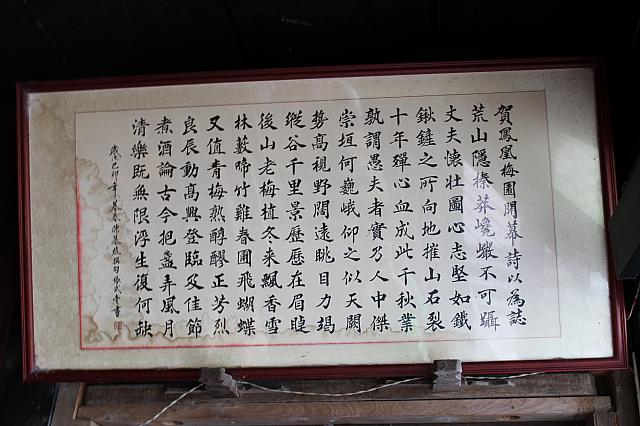 賀鳳凰梅園開幕詩以為誌
荒山隱榛莽巉巖不可躡
丈夫懷壯圖心志堅如鐵
鍬鏟之所向地摧山石裂
十年殫心血成此千秋業
孰謂愚夫者實乃人中傑
崇垣何巍峨仰之似天闕
勢高視野闊遠眺目力竭
縱谷千里景歷歷在眉睫
後山老梅植冬来飄香雪
林藪啼竹雞春圃飛蝴蝶
又值青梅熟醇醪正芳烈
良辰動高興登臨及佳節
煮酒論古今把盞弄風月
清樂既無限浮生復何缺
歲次己卯年